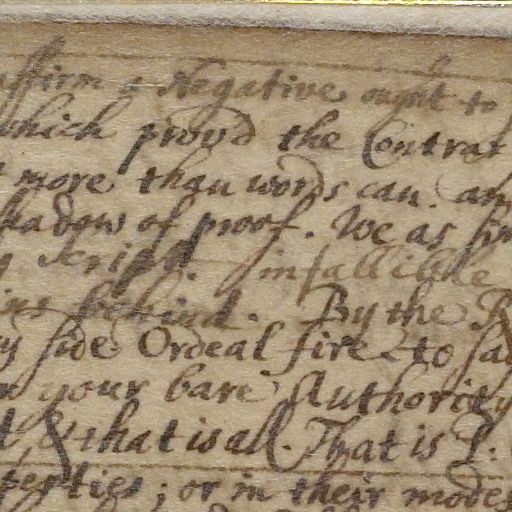 affirm a Negative ought to
which prov'd the Contrar
more than words can. an
shadow of proof. We as fir
Script. infallible
behind. By the R
side Ordeal fire to sa
your bare Authority
& that is all. That is P.
terties; or in their modes